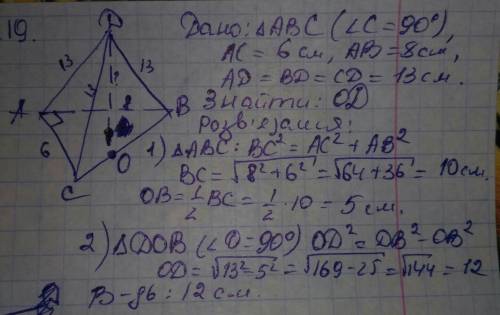 19.
Дано: △ABC (∠C = 90°),
AC = 6 см, AB = 8 см,
AD = BD = CD = 13 см.
Знайти: OD
Розв'язання:
D
13
13
13
?
A
8
B
6
O
C
1) △ABC: BC² = AC² + AB²
BC = √8² + 6² = √64 + 36 = 10 см.
OB = 1/2 BC = 1/2 · 10 = 5 см.
2) △DOB (∠O = 90°) OD² = DB² - OB²
OD = √13² - 5² = √169 - 25 = √144 = 12
В-дь: 12 см.